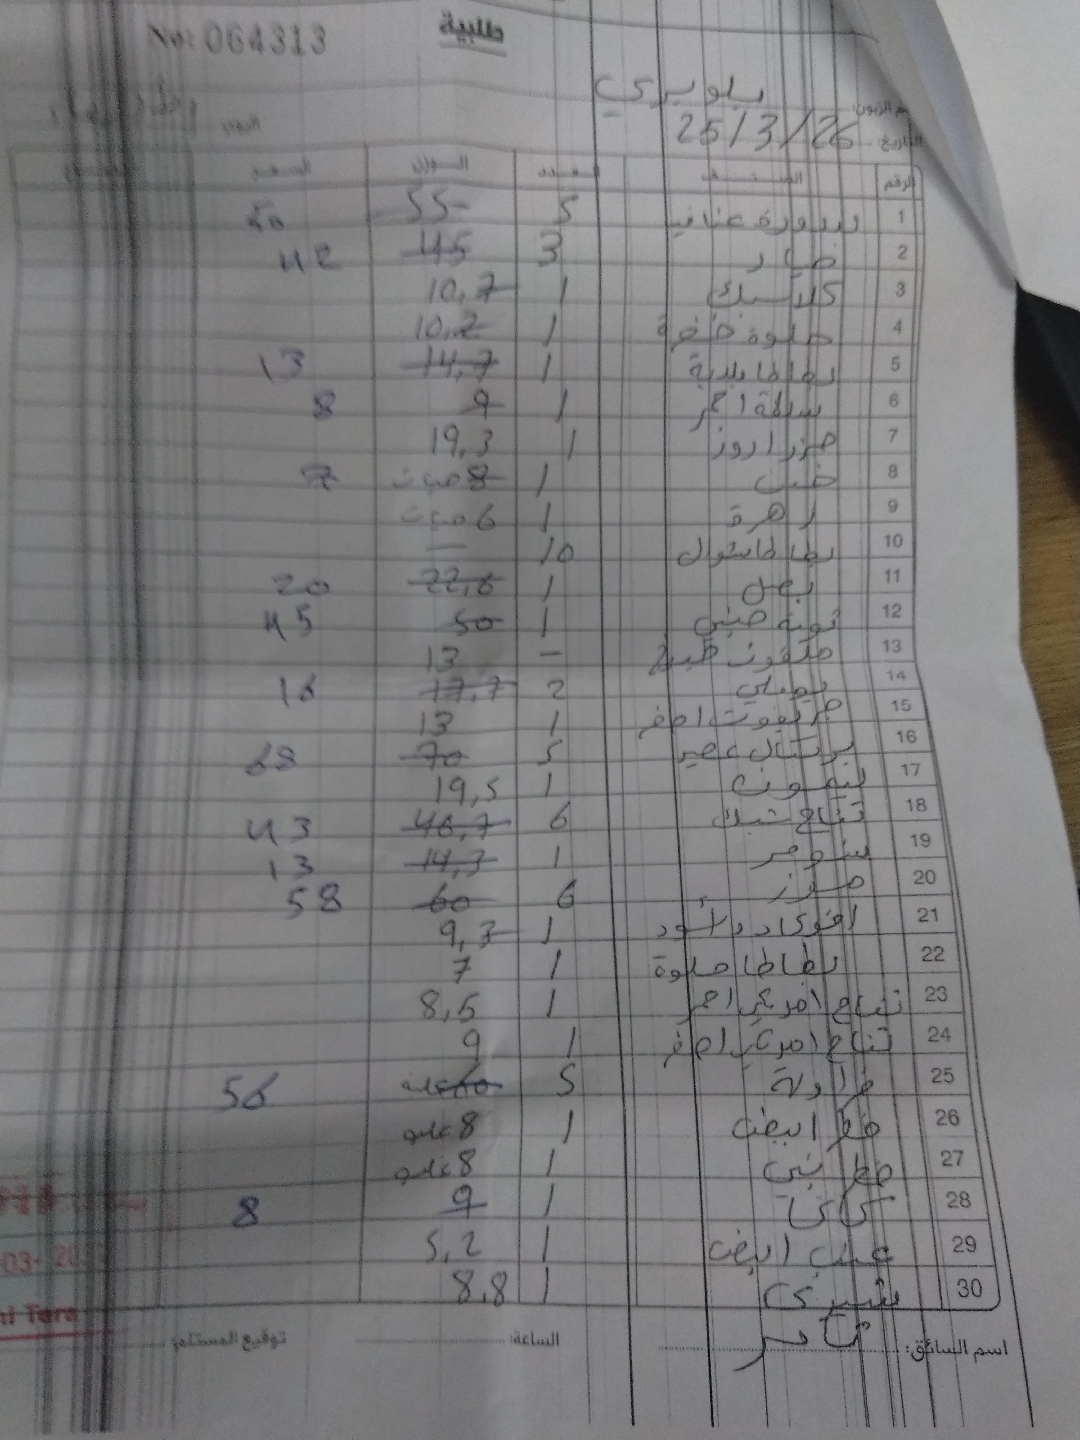 طلبية
No: 064313
اسم الزبون: بلوبيري
التاريخ: 25/3/26
الرقم الصنف عدد الوزن
1 بندورة عنافيد 5 55 50
2 خيار 3 45 42
3 كلاسيك 1 10,7
4 حلوة خضرة 1 10,2
5 بطاطا بلدية 1 14,7 13
6 بسلة احمر 1 9 8
7 جزر اروز 1 19,3
8 خس 1 8 حبات 7
9 زهرة 1 6 حبات
10 بطاطا ستول 10 —
11 بصل 1 22,6 20
12 توب صيني 1 50 45
13 ملفوف طبيخ — 13
14 بوملي 2 17,7 16
15 جريفوت اصفر 1 13
16 برتقال عصير 5 70 68
17 ليمون 1 19,5
18 تفاح تبك 6 46,7 43
19 1 14,3 13
20 موز 6 60 58
21 افوكادو اسود 1 9,3
22 بطاطا حلوة 1 7
23 تفاح امريكي احمر 1 8,5
24 تفاح امريكي اصفر 1 9
25 فراولة 5 60 علبة 56
26 فطر ابيض 1 8 علب
27 فطر بني 1 8 علب
28 1 9 8
29 عنب ابيض 1 5,2
30 شيري 1 8,8
اسم السائق: الساعة: توقيع المستلم: